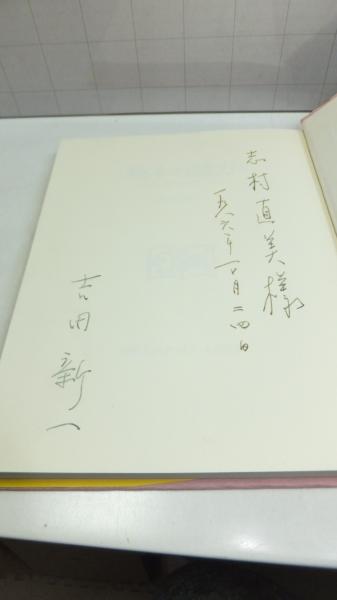 志村直美様
一九八六年一月二四日
吉田新一